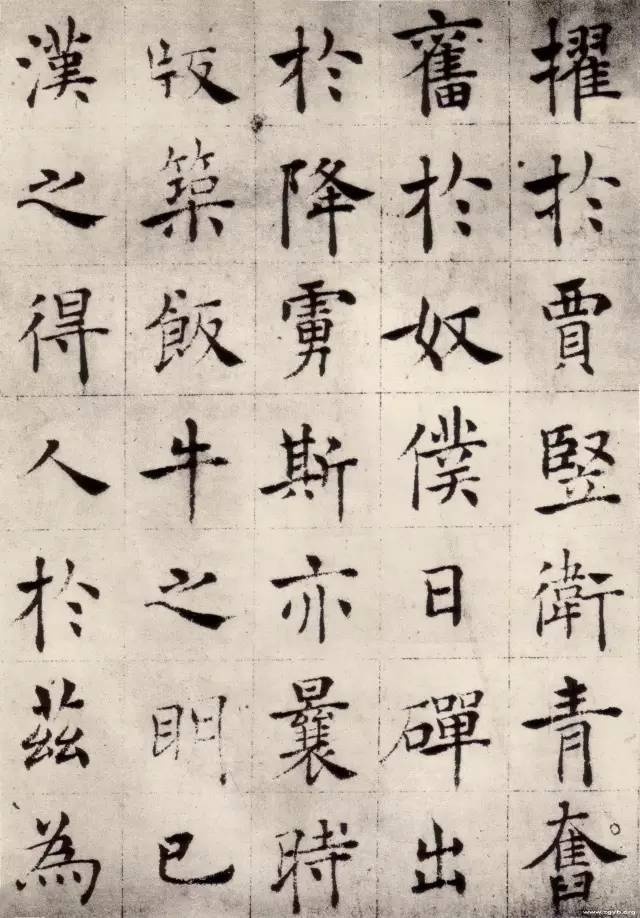 擢於賈竪衛青奮
奮於奴僕日磾出
於降虜斯亦曩時
版築飯牛之明已
漢之得人於茲為
www.zgyb.org